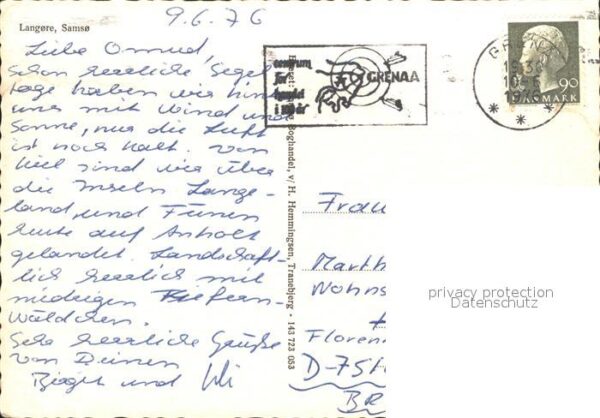 Langøre, Samsø
9.6.76
Liebe Omud,
schon herrliche Segel-
tage haben wir hinter
uns mit Wind und
Sonne, nur die Luft
ist noch kalt. Von
Kiel sind wir über
die Inseln Lange-
land, und Fünen
heute auf Anholt
gelandet. Landschaft-
lich herrlich mit
niedrigen Kiefern-
Wäldchen.
Sehr herrliche Grüße
von Deinen
Birgit und Uli
centrum
for
handel
i
GRENAA
GRENAA
10.6
1976
90
DANMARK
Boghandel, v/ H. Hemmingsen, Tranebjerg - 143 723 053
Frau
Marth
Wohns
Floren
D-75
BR
privacy protection
Datenschutz